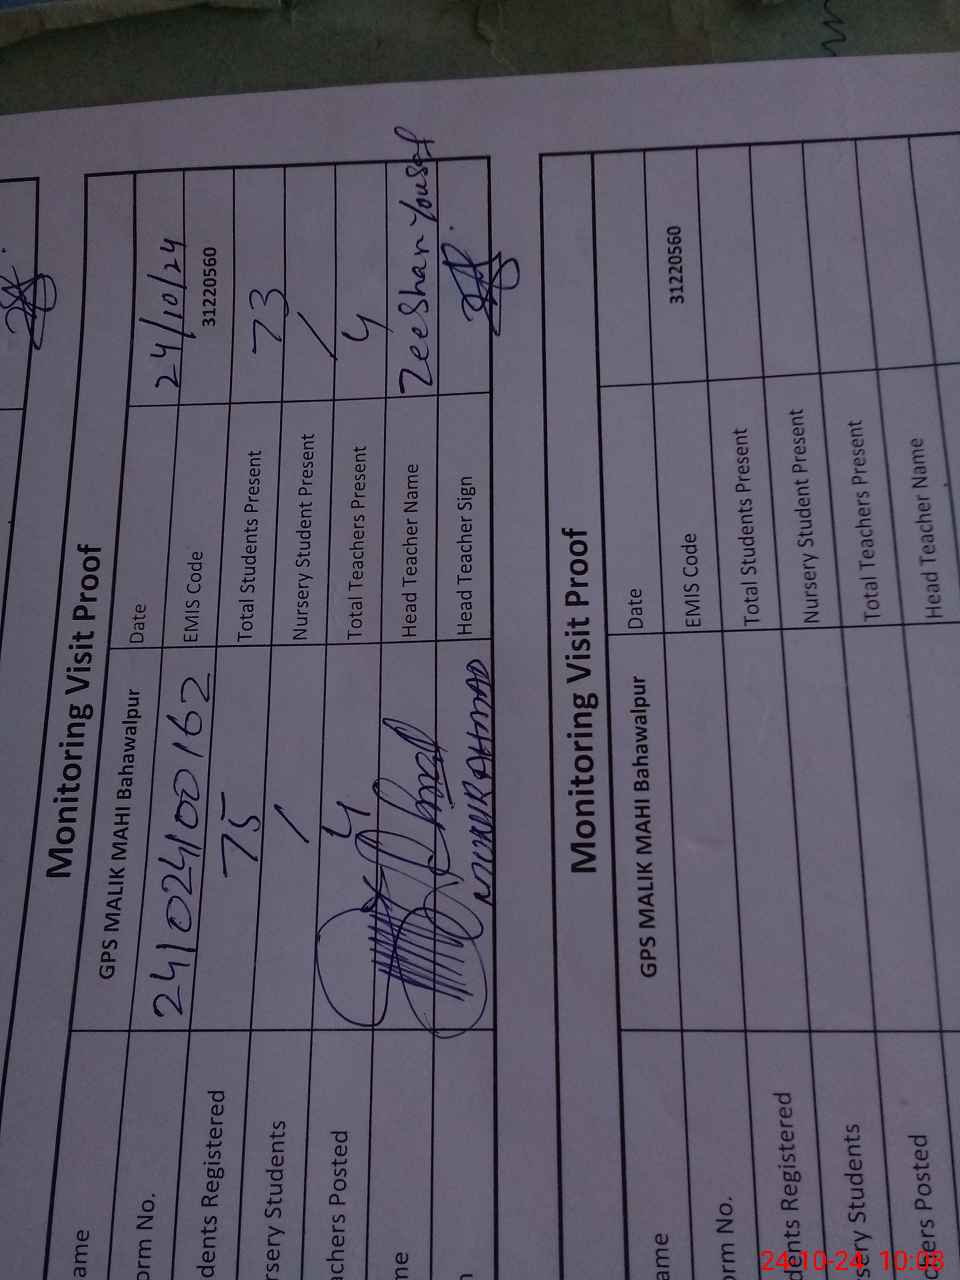 Monitoring Visit Proof
ame GPS MALIK MAHI Bahawalpur Date 24/10/24
orm No. 241024100162 EMIS Code 31220560
dents Registered 75 Total Students Present 73
rsery Students / Nursery Student Present /
achers Posted 4 Total Teachers Present 4
me Head Teacher Name Zeeshan Yousaf
n MUNIR AHMAD Head Teacher Sign
Monitoring Visit Proof
ame GPS MALIK MAHI Bahawalpur Date
orm No. EMIS Code 31220560
dents Registered Total Students Present
sery Students Nursery Student Present
chers Posted Total Teachers Present
Head Teacher Name
24-10-24 10:08